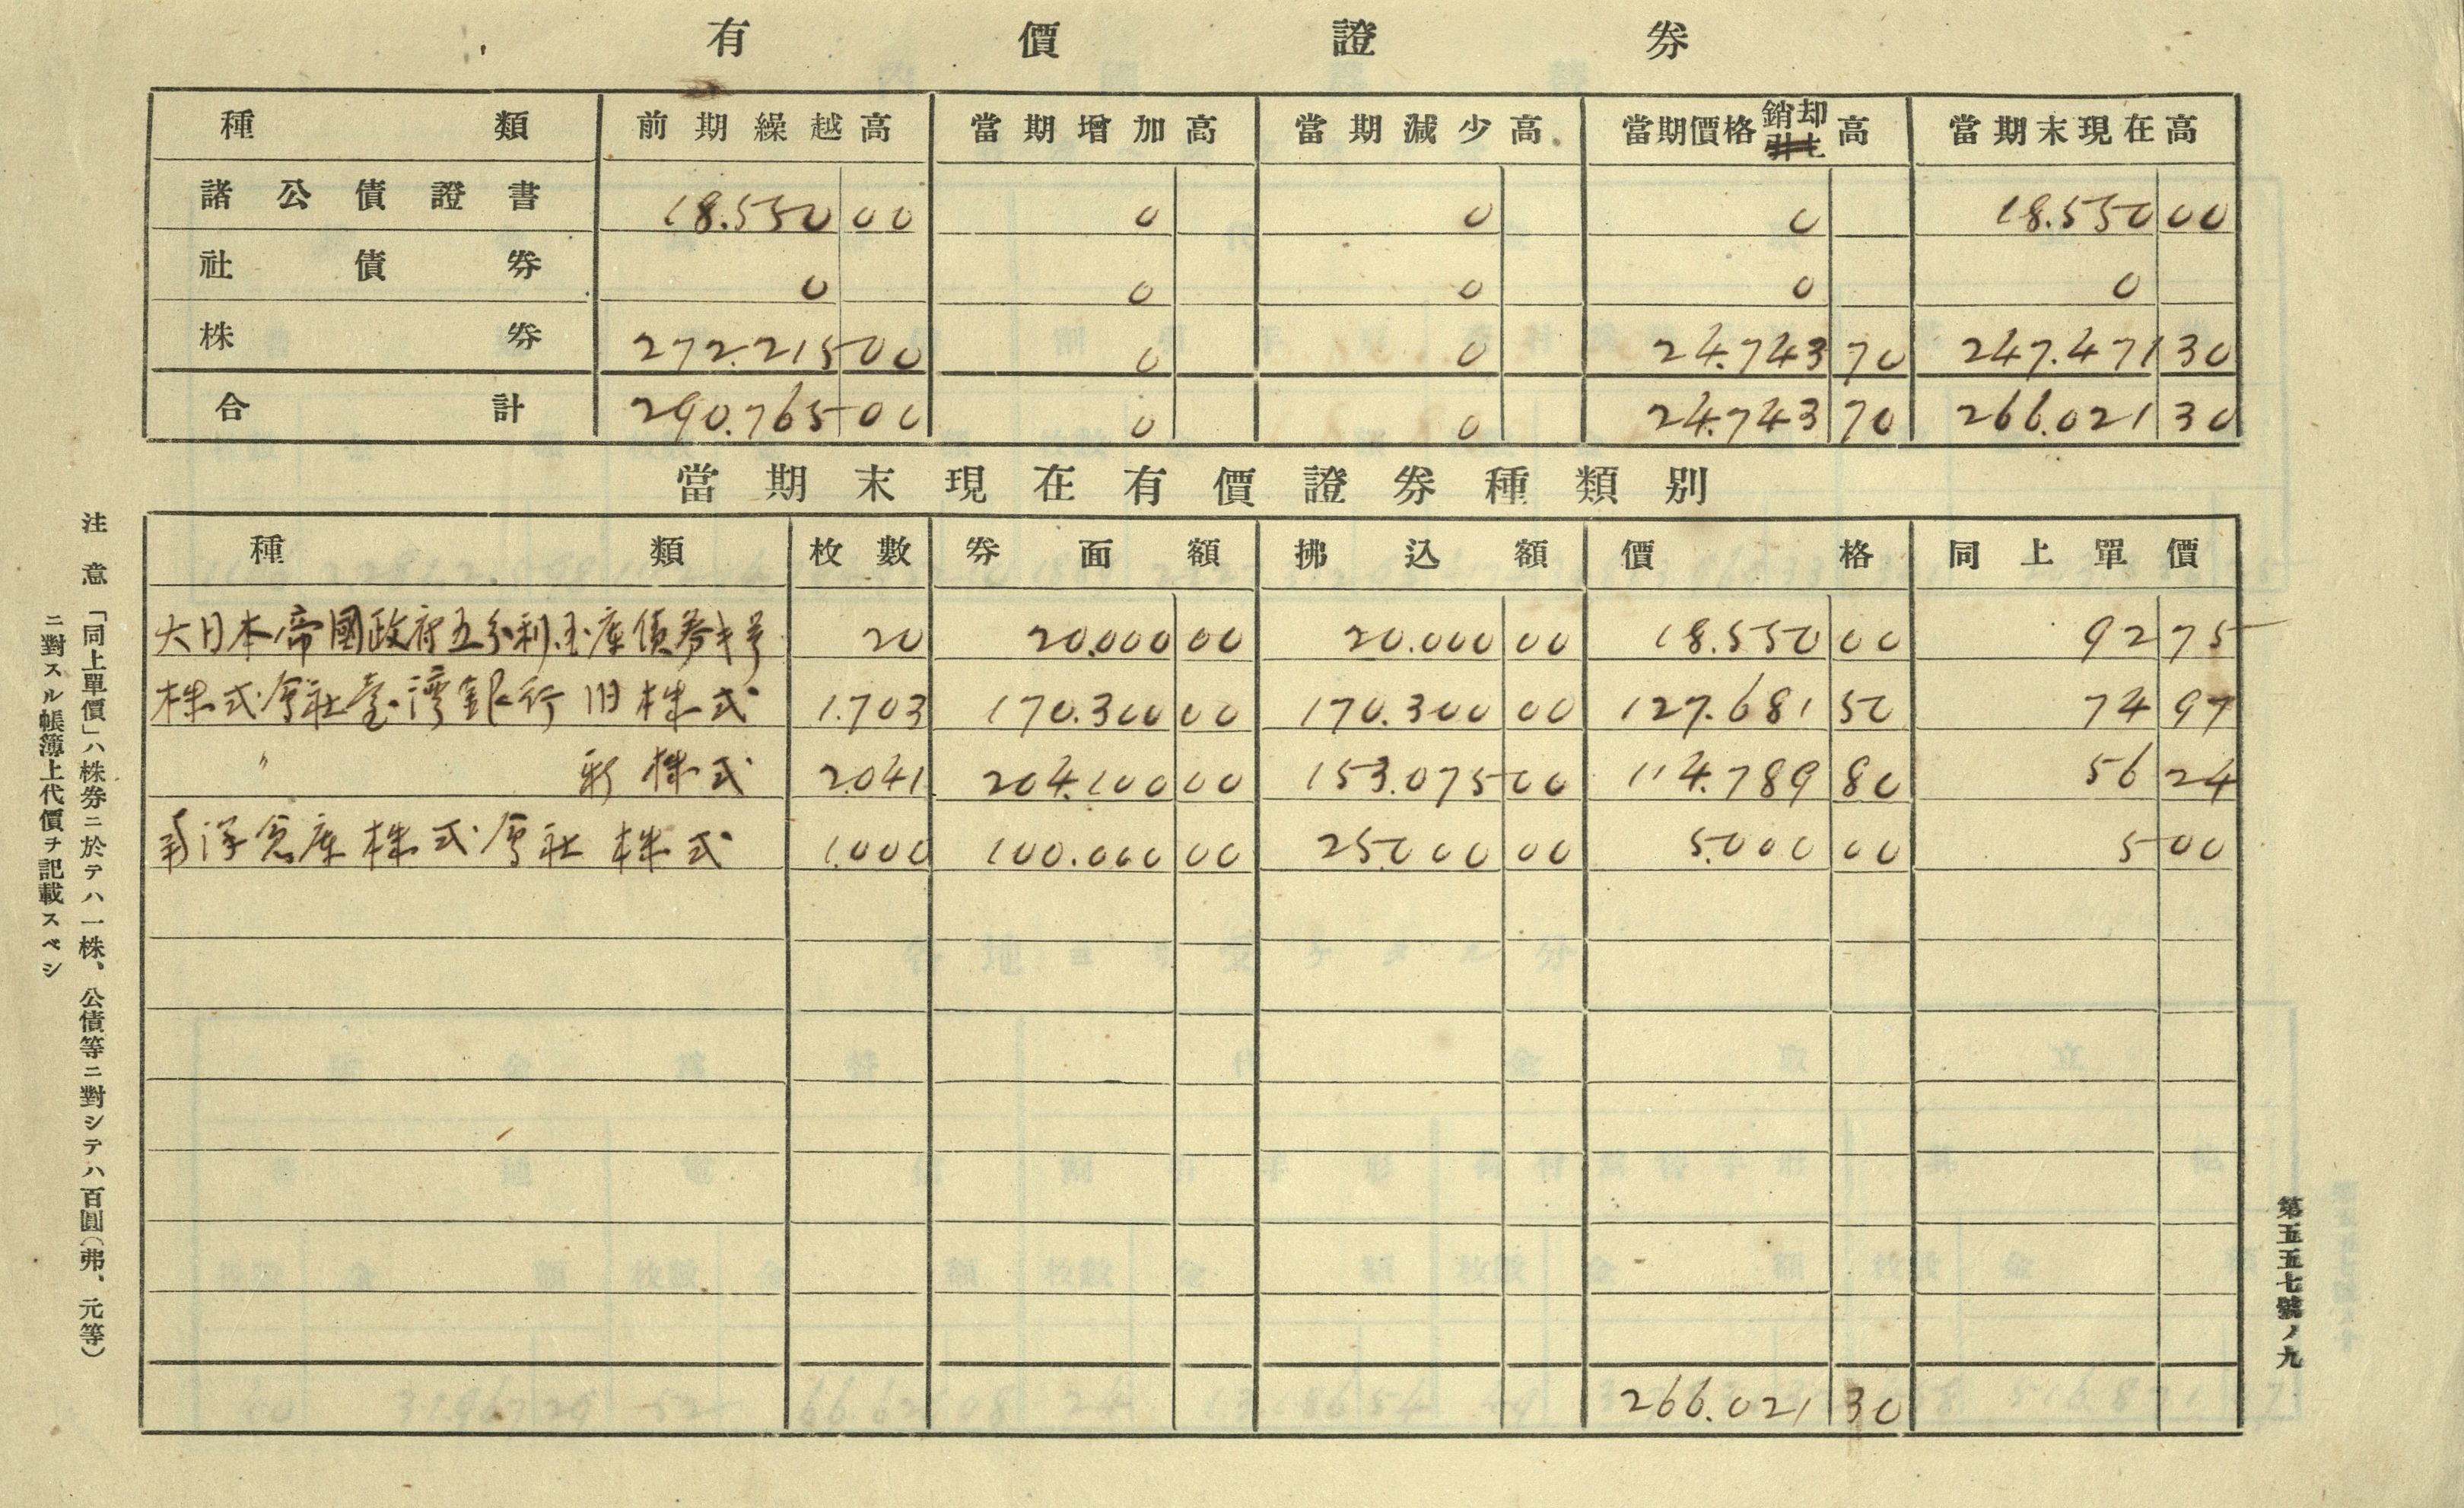 有價證券
種類 前期繰越高 當期增加高 當期減少高 當期價格銷却高 當期末現在高
諸公債證書 18.550 00 0 0 0 18.550 00
社債券 0 0 0 0 0
株券 272.215 00 0 0 24.743 70 247.471 30
合計 290.765 00 0 0 24.743 70 266.021 30
當期末現在有價證券種類別
種類 枚數 券面額 拂込額 價格 同上單價
大日本帝國政府五分利國庫債券 20 20.000 00 20.000 00 18.550 00 92 75
株式會社臺灣銀行旧株式 1.703 170.300 00 170.300 00 127.681 50 74 97
〃 新株式 2.041 204.100 00 153.075 00 114.789 80 56 24
南洋倉庫株式會社株式 1.000 100.000 00 25.000 00 5.000 00 5 00
266.021 30
注意 「同上單價」ハ株券ニ於テハ一株、公債等ニ對シテハ百圓(弗、元等)
ニ對スル帳簿上代價ヲ記載スベシ
第五五七號ノ九